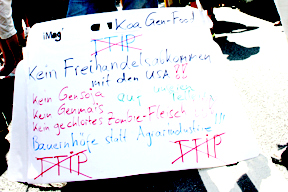 iMögi Koa Gen-Food!
TTIP
Kein Freihandelsabkommen
mit den USA!!
Kein Gensoja auf
Kein Genmais
Kein gechlortes Zombie-Fleisch!
Bauernhöfe statt Agrarindustrie!!!
TTIP TTIP